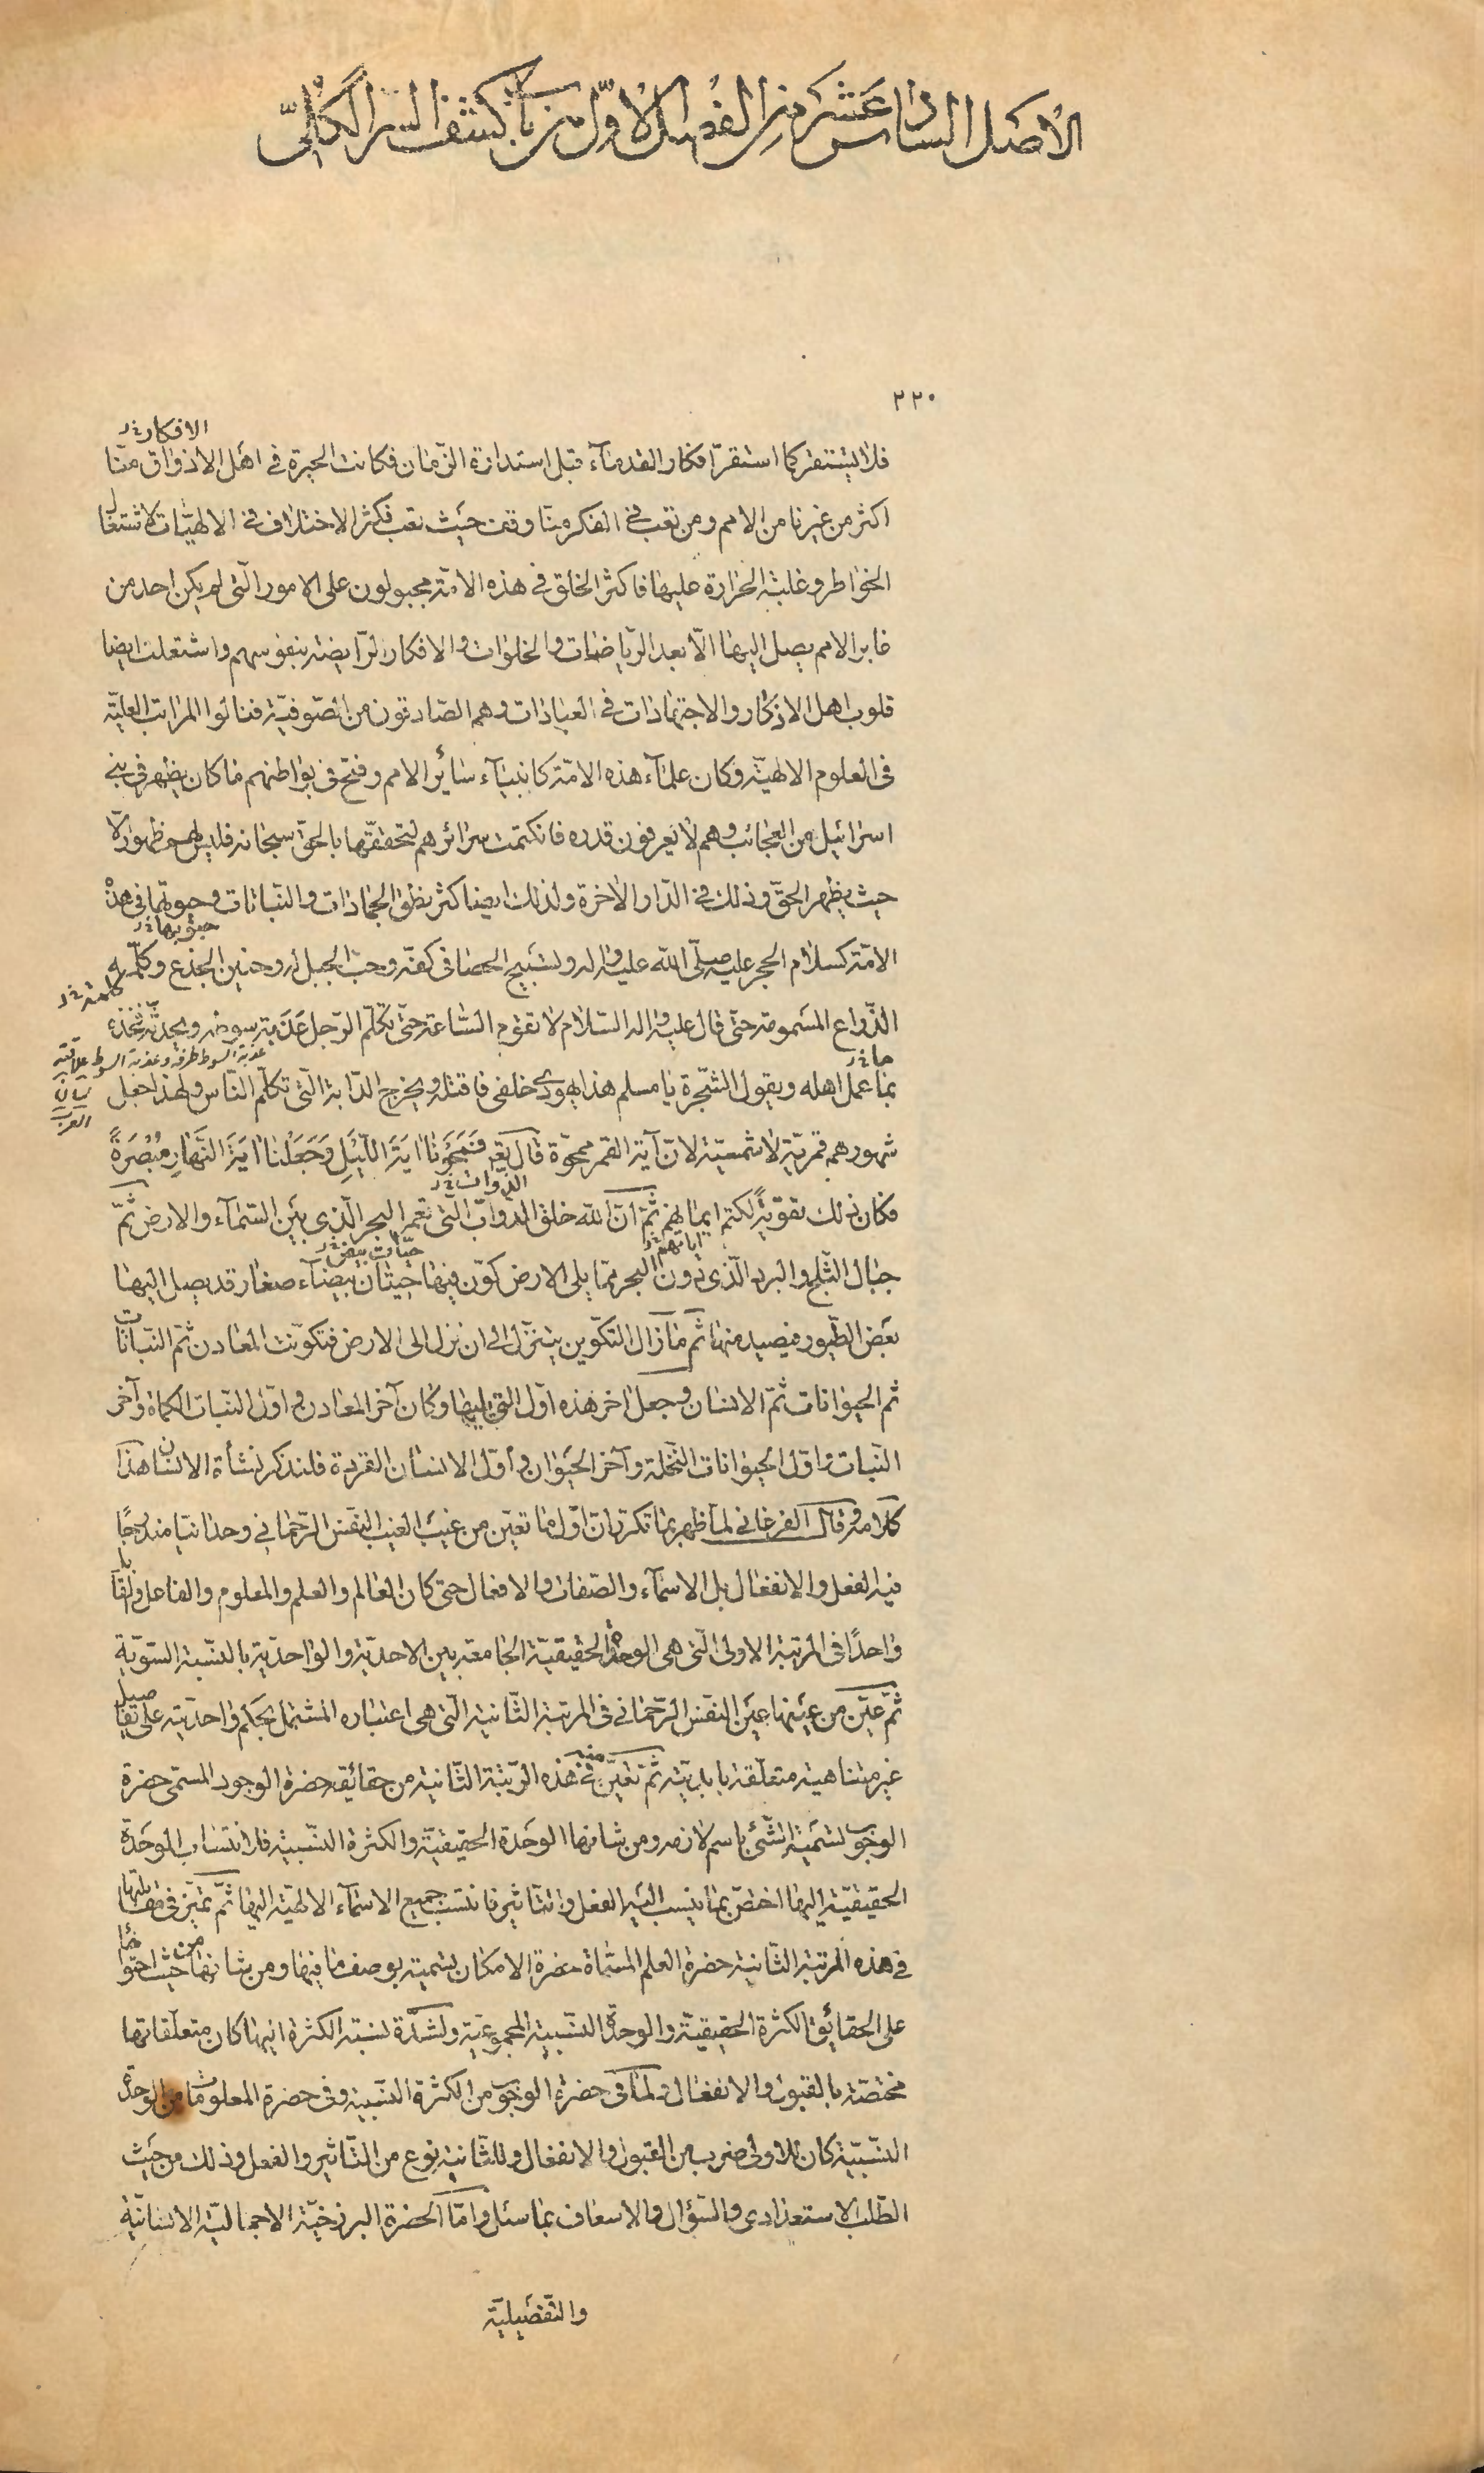 الاصل السادس عشر من الفصل الاول من باب كشف السر الكلّى
٢٢٠
الافكار خ‍ل
فلا يستقر كما استقرّ افكار القدماء قبل استدارة الزّمان فكانت الحيرة فى اهل الاذواق منّا
اكثر من غيرنا من الامم ومن تعب فى الفكر منّا وقف حيث تعب فكثر الاختلاف فى الالهيّات لاشتغال
الخواطر وغلبة الحرارة عليها فاكثر الخلق فى هذه الامّة مجبولون على الامور الّتى لم يكن احد من
غابر الامم يصل اليها الّا بعد الرّياضات والخلوات والافكار الرّايضة بنفوسهم واشتغلت ايضا
قلوب اهل الاذكار والاجتهادات فى العبادات وهم الصّادقون من الصّوفيّة فنالوا المراتب العليّة
فى العلوم الالهيّة وكان علماء هذه الامّة كانبياء سائر الامم وفتح فى بواطنهم ما كان يظهر فى بنى
اسرائيل من العجائب وهم لا يعرفون قدره فانكتمت سرائرهم لتحققّها بالحقّ سبحانه فليس لهم ظهور الّا
حيث يظهر الحقّ وذلك فى الدّار الاخرة ولذلك ايضا كثر نطق الجمادات والنّباتات وحيوتها فى هذه
حيوتها خ‍ل
الامّة كسلام الحجر عليه صلّى الله عليه واله وتسبيح الحصا فى كفّه وحبّ الجبل له وحنين الجذع وكلّمه
كلمته خ‍ل
الذّراع المسمومة حتّى قال عليه واله السّلام لا تقوم السّاعة حتّى تكلّم الرّجل عذبة سوطه ويحدّثه فخذه
عذبة السوط طرفه وعذبة السوط علاقته لسان العرب
ما خ‍ل
بما عمل اهله ويقول الشّجرة يا مسلم هذا يهودى خلفى فاقتله ويخرج الدّابة الّتى تكلّم النّاس ولهذا جعل
شهورهم قمريّة لا شمسيّة لانّ آية القمر ممحوّة قال تع‍ فَمَحَوْنا ايَةَ اللَّيْلِ وَجَعَلْنا ايَةَ النَّهارِ مُبْصِرَةً
الذوات خ‍ل
فكان ذلك تقويةً لكتم ايمانهم ثمّ انّ الله خلق الدّوابّ الّتى تعمر البحر الّذى بين السّماء والارض ثمّ
اياتهم خ‍ل
حيّات بيض خ‍ل
جبال الثّلج والبرد الّذى دون البحر ممّا يلى الارض كوّن فيها حيتان بيضاء صغار قد يصل اليها
بعض الطّيور فيصيد منها ثمّ ما زال التكّوين يتنزّل الى ان نزل الى الارض فتكوّنت المعادن ثمّ النّباتات
ثم الحيوانات ثمّ الانسان وجعل اخر هذه اوّل الّتى يليها وكان آخر المعادن واوّل النّبات الكماة وآخر
النّبات واوّل الحيوانات النّخلة وآخر الحيوان وأوّل الانسان القردة فلنذكر نشأة الانسان هذا
كلامه وقال الفرغانى لما ظهر بما تكرّر ان اوّل ما تعيّن من غيب الغيب النفس الرّحمانى وحدانيا مندرجًا
فيه الفعل والانفعال بل الاسماء والصّفات والافعال حتى كان العالم والعلم والمعلوم والفاعل والقابل
واحدًا فى المرتبة الاولى الّتى هى الوحدة الحقيقيّة الجامعة بين الاحديّة والواحديّة بالنّسبة السّويّة
ثمّ عيّن من عينها عين النفس الرّحمانى فى المرتبة الثّانية الّتى هى اعتباره المشتمل بحكم واحديّته على تفاصيل
غير متناهية متعلّقة بابديّته ثمّ تعيّن منه فى هذه الرّتبة الثّانية من حقائقه حضرة الوجود المسمّى حضرة
الوجوب لتسمية الشّئ باسم لازمه ومن شانها الوحدة الحقيقيّة والكثرة النّسبية فلانتساب الوحدة
الحقيقيّة اليها اختصّ بما ينسب اليه الفعل والتّاثير فانتسب جميع الاسماء الالهيّة اليها ثمّ تميّز فى مقابلتها
فى هذه المرتبة الثّانية حضرة العلم المسّماة حضرة الامكان بتسميته بوصف ما فيها ومن شانها من حيث احتوائها
على الحقائق الكثرة الحقيقيّة والوحدة النّسبية المجموعيّة ولشدّة نسبة الكثرة اليها كان متعلّقاتها
مختصّة بالقبول والانفعال ولما فى حضرة الوجوب من الكثرة النّسبية وفى حضرة المعلومات من الوحدة
النّسبيّة كان للاولى ضرب من القبول والانفعال وللثّانية نوع من التّاثير والفعل وذلك من حيث
الطّلب الاستعدادى والسّؤال والاسعاف بما سئل وامّا الحضرة البرزخيّة الاجماليّة الانسانيّة
والتّفصيليّة